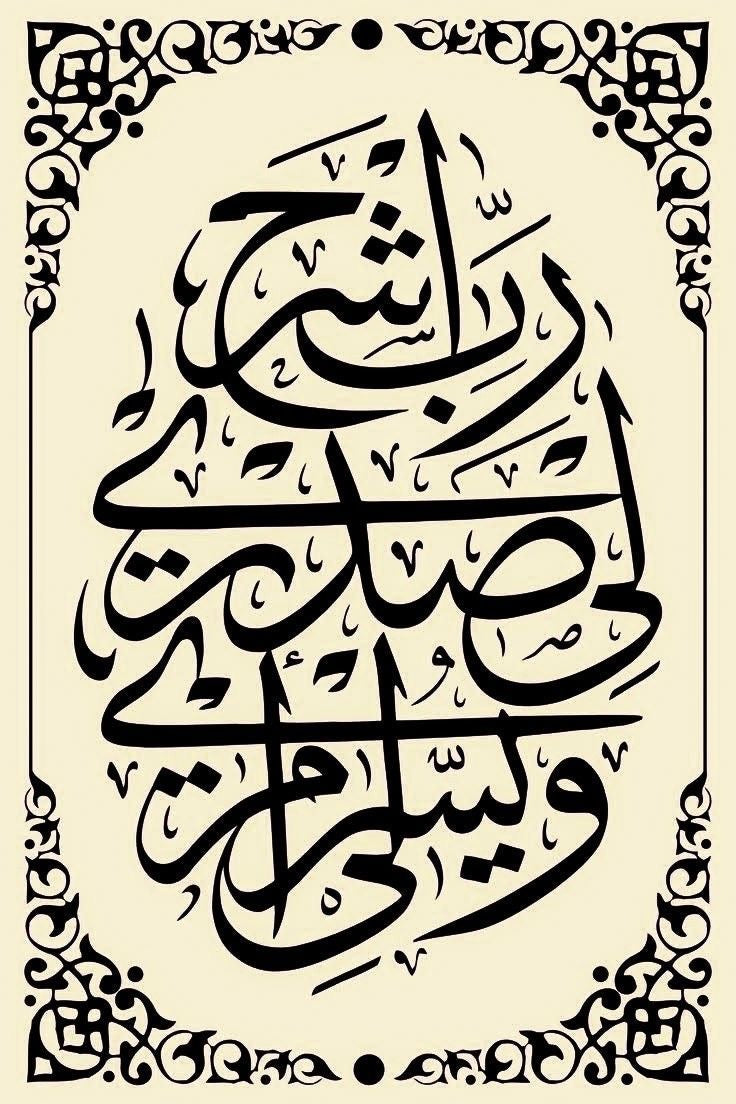 رَبِّ اشْرَحْ
لِي صَدْرِي
وَيَسِّرْ لِي أَمْرِي